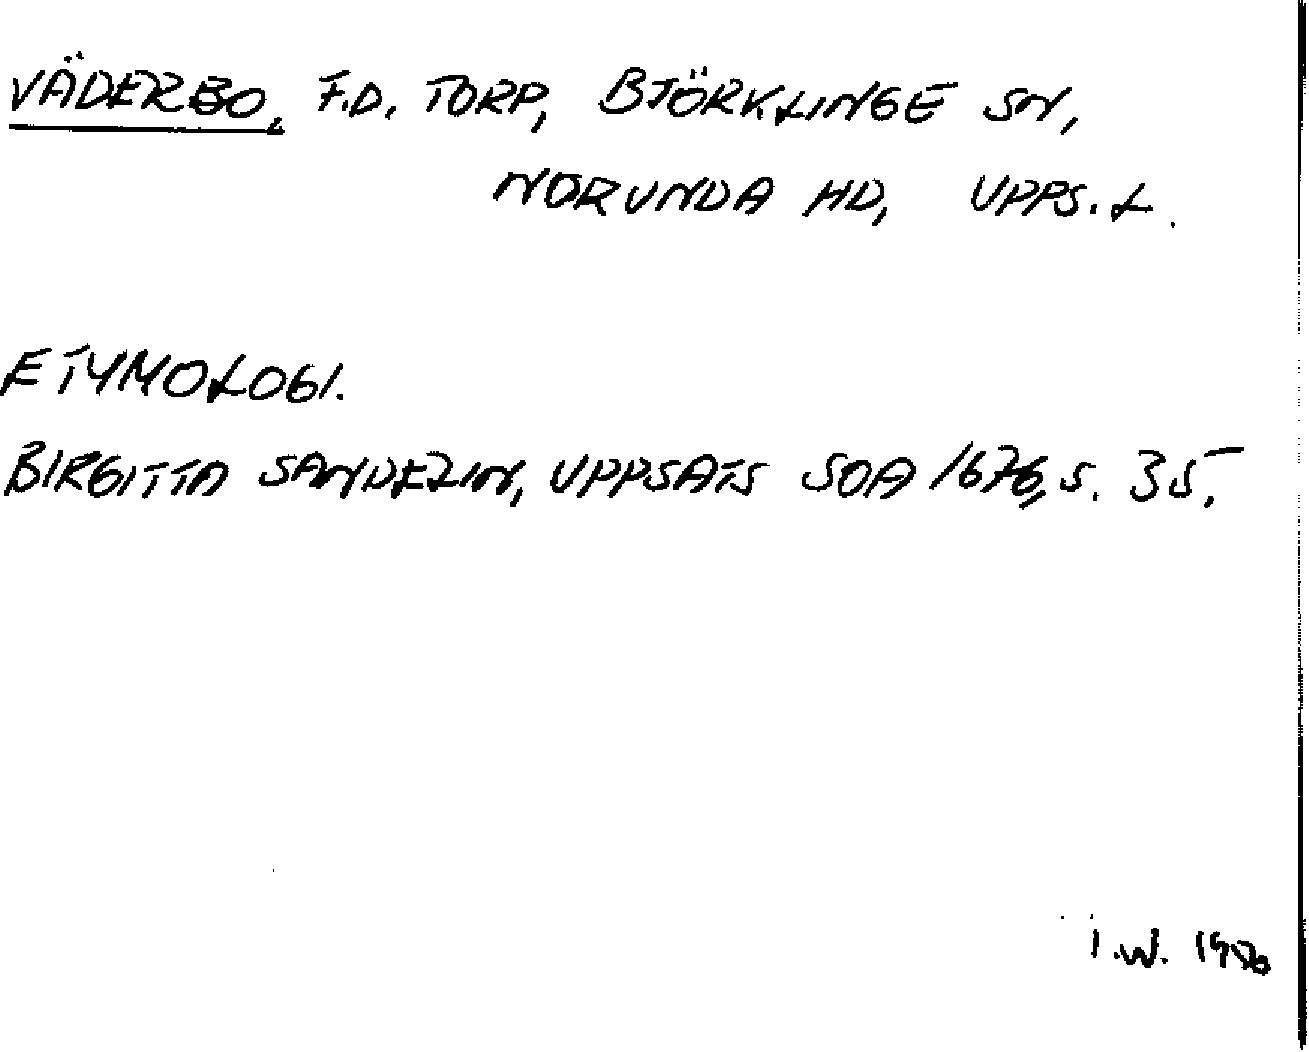 VÄDERBO, F.D. TORP, BJÖRKLINGE SN,
NORUNDA HD, UPPS. L.
ETYMOLOGI.
BIRGITTA SANDELIN, UPPSATS SOA 1676, S. 35.
I.W.